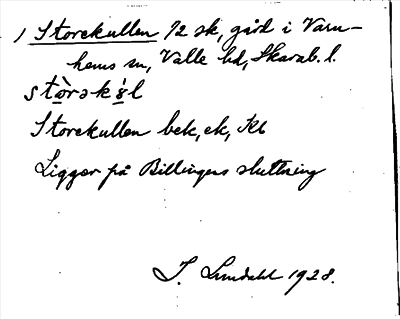 1 Storekullen 1/2 sk, gård i Varn-
hems sn, Valle hd, Skarab. l.
Storekullen bek, ek, Kb
Ligger på Billingens sluttning
I. Lundahl 1928.